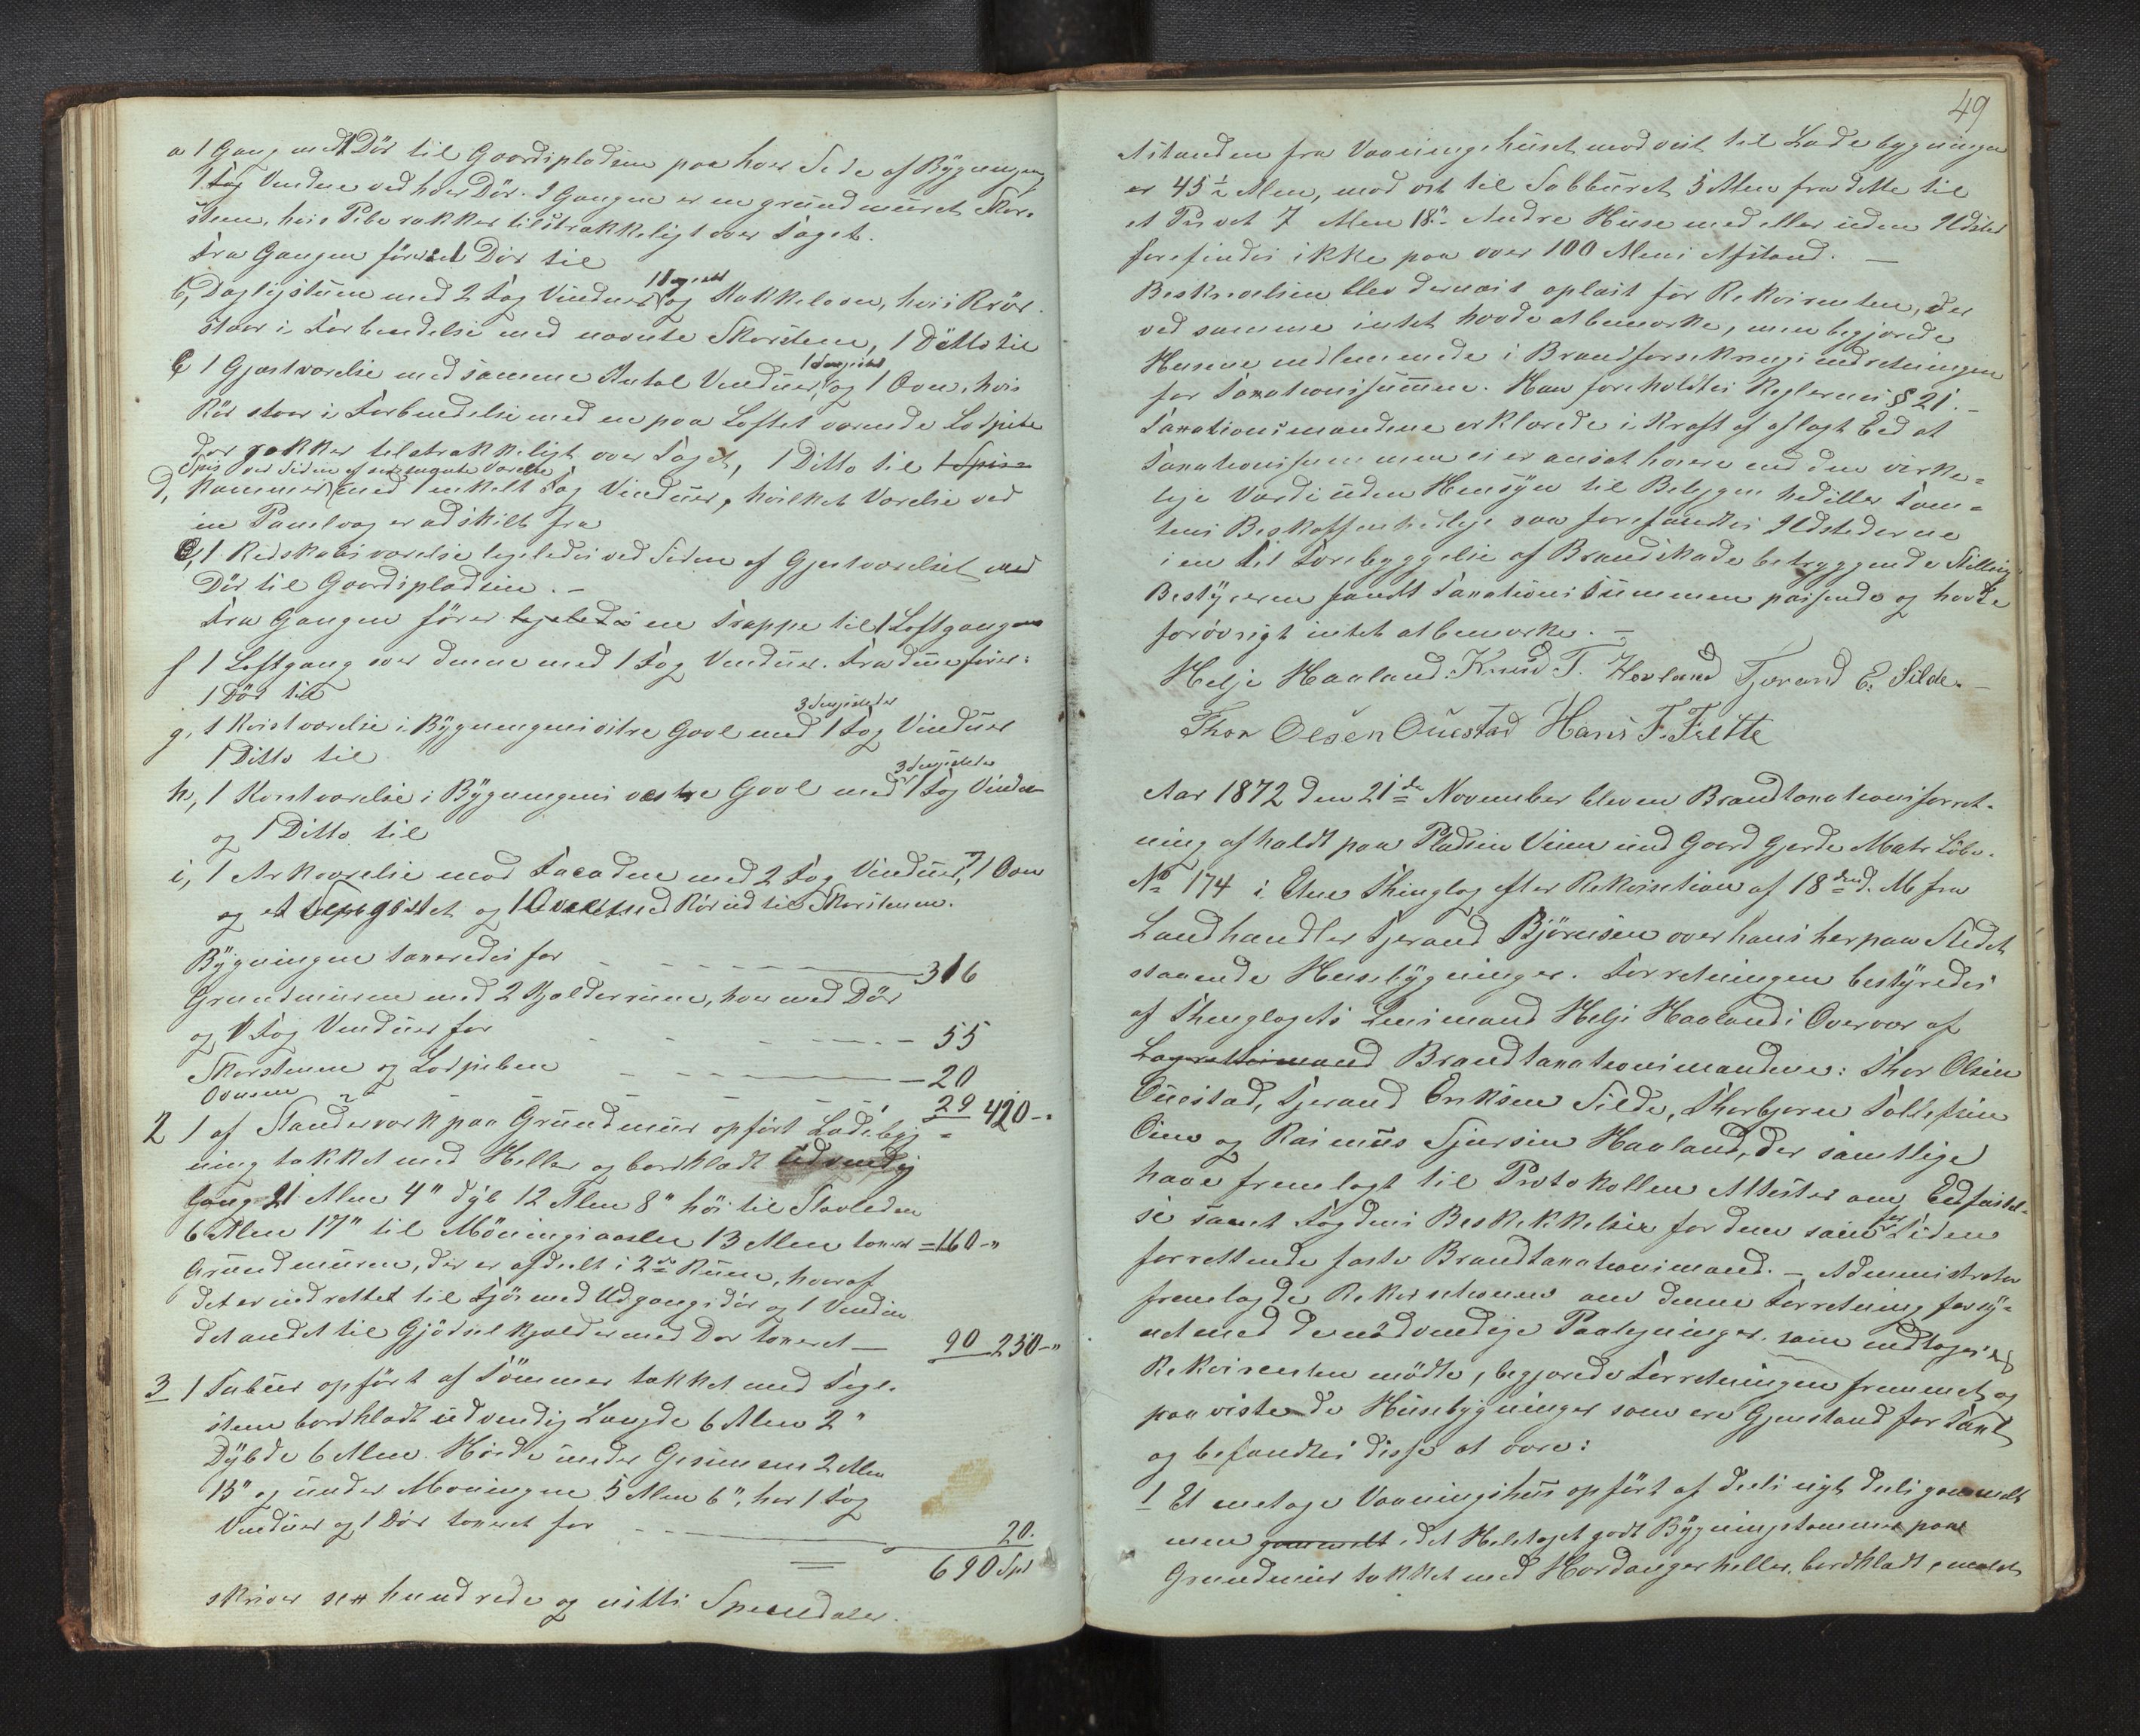 a 1 Gang med 1 Dör til Gaardspladsen paa hver Side af Bygningen
1 Fag Vinduer ved hver Dör. I Gangen er en grundmuret Skor-
sten, hvis Pibe rækker tilstrækkeligt over Taget.
Fra Gangen förer 1 Dör til
b, Dagligstuen med 2 Fag Vinduer og Kakkelovn, hvis Rör
staar i Forbindelse med nævnte Skorsten, 1 Ditto til
c 1 Gjæstværelse med samme Antal Vinduer, og 1 Ovn, hvis
Rör staar i Forbindelse med en paa Loftet værende Lodpibe
der rækker tilstrækkeligt over Taget, 1 Ditto til 1 Spis-
Spis ved Siden af værelse
d, kammer med 1 enkelt Fag Vinduer, hvilket Værelse ved
en Panelvæg er adskilt fra
e, 1 Redskabsværelse ligeledes ved Siden af Gjestværelset med
Dör til Gaardspladsen. -
Fra Gangen förer ligeledes en Trappe til 1 Loftgang
f 1 Loftgang over denne med 1 Fag Vinduer. Fra denne förer
1 Dör til
g, 1 Kvistværelse i Bygningens östre Gavl med 1 Fag Vinduer
1 Ditto til
h, 1 Kvistværelse i Bygningens vestre Gavl med 1 Fag Vinduer
og 1 Ditto til
i, 1 Arkværelse mod Facaden med 2 Fag Vinduer, 1 Ovn
og et og 1 med Rör ind til Skorstenen.
Bygningen taxeredes for 316
Grundmuren med 2 Kjælderrum, hver med Dör
og 1 Fag Vinduer for 55
Skorstenen og Lodpiben 20
Ovnene 29 420-"
2 1 af Standerværk paa Grundmur opfört Ladebyg-
ning tækket med Heller og bordklædt udvendig
lang 21 Alen 4" dyb 12 Alen 8" höi til Stavleden
6 Alen 17" til Möningsaasen 13 Alen taxeret =160-"
Grundmuren, der er afdeelt i 2de Rum, hvoraf
det er indrettet til Fjös med Udgangsdör og 1 Vindue
det andet til Gjödselkjelder med Dör taxeret 90 250-"
3 1 Stabur opfört af Tömmer tækket med Tegl-
sten bordklædt udvendig Længde 6 Alen 2"
Dybde 6 Alen. Höide under Gesimsen 2 Alen
15" og under Möningen 5 Alen 6", har 1 Fag
Vinduer og 1 Dör taxeret for 20.
690 Spd
skriver sex hundrede og nitti Speciedaler.
49
Afstanden fra Vaaningshuset mod vest til Ladebygningen
er 45½ Alen, mod öst til Stabburet 5 Alen fra dette til
et 7 Alen 18". Andre Huse med eller uden Ildsted
forefindes ikke paa over 100 Alens Afstand. -
Beskrivelsen blev dernæst oplæst for Rekvirenten, der
ved samme intet havde at bemærke, men begjærede
Husene indlemmede i Brandforsikringsindretningen
for Taxationssummen. Ham foreholdtes Reglernes § 21. -
Taxationsmændene erklærede i Kraft af aflagt Eed at
Taxationssummen ei er ansat höiere end den virke-
lige Værdi uden Hensyn til Beliggenhed eller Tom-
tens Beskaffenhed lige saa forefandtes Ildstederne
i en til Forebyggelse af Brandskade betryggende Stilling
Bestyreren fandt Taxationssummen passende og havde
forövrigt intet at bemærke. -
Helje Haaland. Knud T. Hovland Tjerand E. Silde. -
Thor Olsen Ouestad Hans F. Fritte
Aar 1872 den 21de November blev en Brandtaxationsforret-
ning afholdt paa Pladsen Vinn und Gaard Gjerde Matr Löbe
No 174 i Etne Thinglag efter Rekvisition af 18de d. M. fra
Landhandler Tjerand Björnsen over hans herpaa Stedet
staaende Husebygninger. Forretningen bestyredes
af Thinglagets Lensmand Helje Haaland i Overvær af
Lagrettesmænd Brandtaxationsmændene: Thor Olsen
Ouestad, Tjerand Eriksen Silde, Thorbjörn Tollefsen
Öine og Rasmus Sjursen Haaland, der samtlige
have fremlagt til Protokollen Attester om Edfæstel-
se samt Fogdens Beskikkelser for dem som for Tiden
forrettende faste Brandtaxationsmænd. - Administrator
fremlagde Rekvisitionen om denne Forretning forsy-
net med de nödvendige Paategninger som indtages
Rekvirenten mödte, begjærede Forretningen fremmet og
paaviste de Husebygninger som ere Gjenstand for Taxt
og befandtes disse at være:
1 Et enetages Vaaningshus opfört af deels nyt deels gammelt
men gammelt i det Heletaget godt Bygningstömmer paa
Grundmur tækket med Hardangerheller, bordklædt, malet